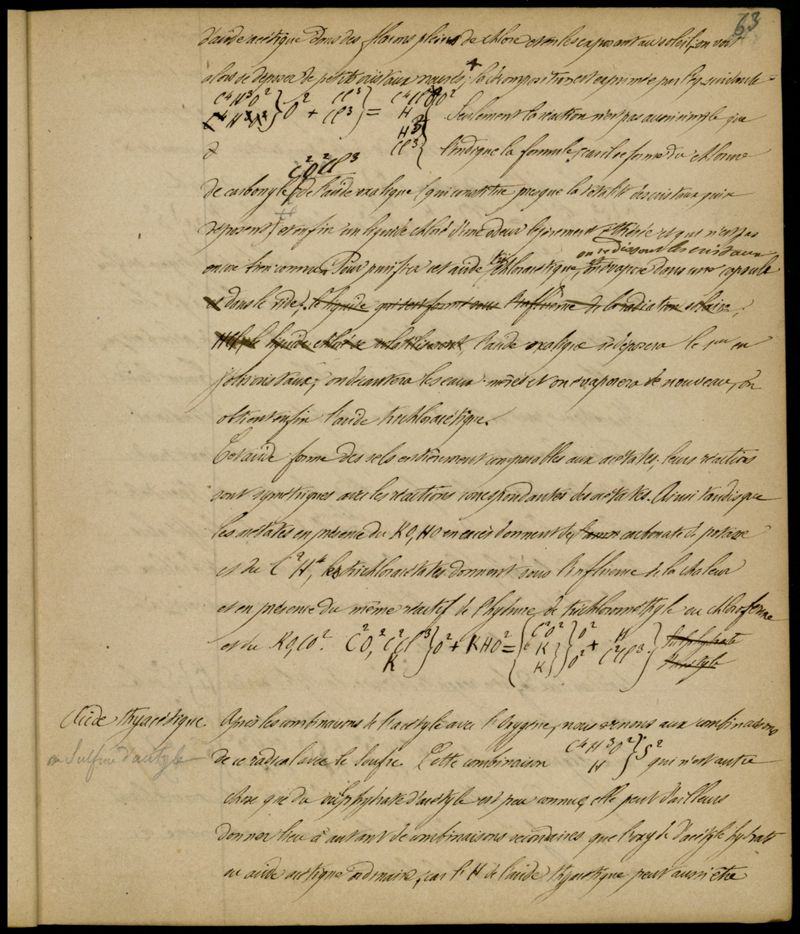 63
d'acide acétique dans des flacons pleins de chlore et en les exposant au soleil; on voit
alors se déposer de petits cristaux nacrés; la décomposition est exprimée par l'eq. suivante
C4H3O2 } O2 + Cl3 Cl3 } = C4Cl3O2 H } O2
Seulement la réaction n'est pas aussi simple que
H3 Cl3 } l'indique la formule, car il se forme du chlorure
C2O2Cl3
de carbonyle, de l'acide oxalique (qui constitue presque la totalité des cristaux qui se
déposent) et enfin un liquide chloré d'une odeur légèrement éthérée et qui n'est pas
encore bien connu. Pour purifier cet acide trichloracétique, on évapore dans une capsule
on redissout les cristaux
et dans le vide, le liquide qui s'est formé sous l'influence de la radiation solaire;
le liquide chloré se volatilisant, l'acide oxalique se déposera le 1er en
jolis cristaux; on décantera les eaux-mères et on évaporera de nouveau, on
obtient enfin l'acide trichloracétique.
Cet acide forme des sels entièrement comparables aux acétates, leurs réactions
sont symétriques avec les réactions correspondantes des acétates. Ainsi tandis que
les acétates en présence du KO,HO en excès donnent du carbonate de potasse
et du C2H4, les trichloracétates donnent sous l'influence de la chaleur
et en présence du même réactif de l'hydrure de trichlorométhyle ou chloroforme
et du KO,CO2. C2O2,C2Cl3 K } O2 + KHO2 = { C2O2 K K } O2 O2 + H C2Cl3 } Sulfhydrate d'acétyle
Acide thyacétique Après les combinaisons de l'acétyle avec l'oxygène, nous venons aux combinaisons
ou Sulfure d'acétyle de ce radical avec le soufre. Cette combinaison C4H3O2 H } S2 qui n'est autre
chose que du sulfhydrate d'acétyle est peu connue, elle peut d'ailleurs
donner lieu à autant de combinaisons secondaires que l'oxyde d'acétyle hydraté
ou acide acétique ordinaire, car l'H de l'acide thyacétique peut aussi être